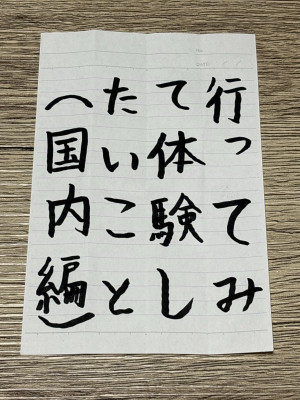 行ってみ
て体験し
たいこと
(国内編)